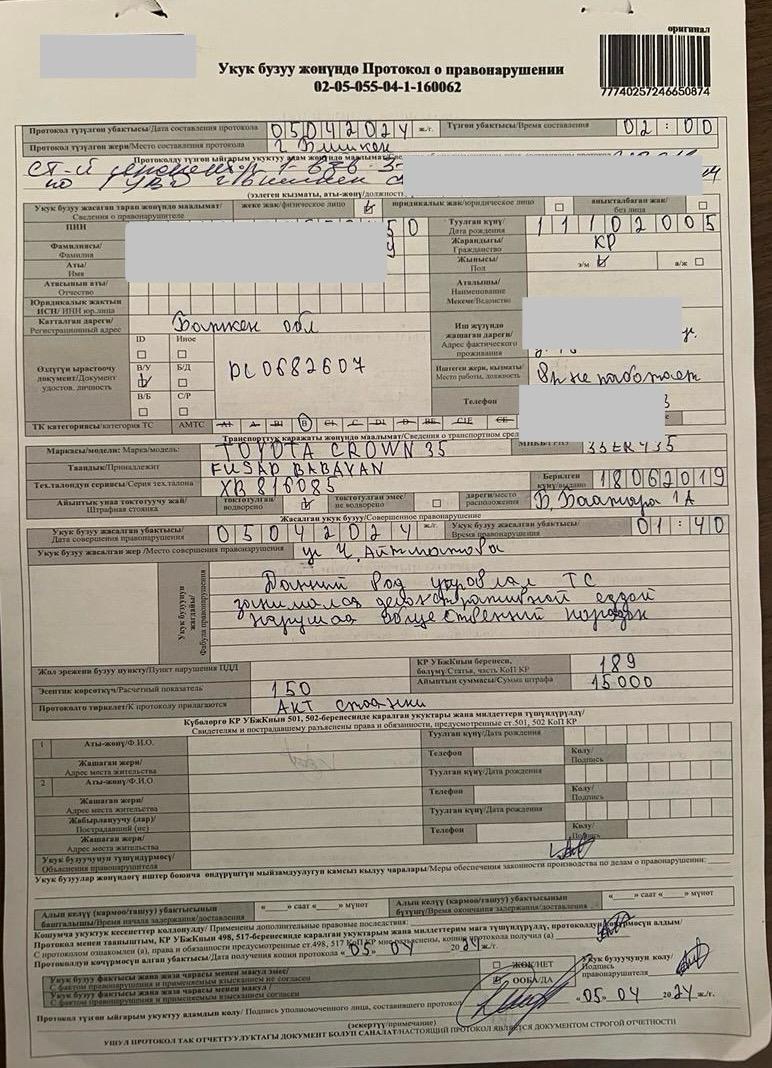 оригинал
77740257246650874
Укук бузуу жөнүндө Протокол о правонарушении
02-05-055-04-1-160062
Протокол түзүлгөн убактысы/Дата составления протокола 05042024 ж/г. Түзүлгөн убактысы/Время составления 02:00
Протокол түзүлгөн жери/Место составления протокола г. Бишкек
Протоколду түзгөн ыйгарым укуктуу адам жөнүндө маалымат/
(ээлеген кызматы, аты-жөнү/должность
Укук бузуу жасаган тарап жөнүндө маалымат/ Сведения о правонарушителе жеке жак/физическое лицо юридикалык жак/юридическое лицо аныкталбаган жак/ без лица
ПИН 50 Туулган күнү/ Дата рождения 11102005
Фамилиясы/ Фамилия Жарандыгы/ Гражданство КР
Аты/ Имя Жынысы/ Пол э/м а/ж
Атасынын аты/ Отчество Аталышы/ Наименование
Юридикалык жактын ИСН/ ИНН юр.лица Мекеме/Ведомство
Катталган дареги/ Регистрационный адрес Баткен обл Иш жүзүндө жашаган дареги/ Адрес фактического проживания
Өздүгүн ырастоочу документ/Документ удостов. личность ID Иное В/У Б/Д В/Б С/Р DL0682607
Иштеген жери, кызматы/ Место работы, должность Вр не работает
Телефон
ТК категориясы/категория ТС АМТС A1 A B1 B C1 C D1 D BE C1E CE
Транспорттук каражаты жөнүндө маалымат/Сведения о транспортном сред
Маркасы/модели: Марка/модель: TOYOTA CROWN 35
Таандык/Принадлежит FUSAD BABAYAN
Тех.талондун сериясы/Серия тех.талона XB 816085 Берилген күнү/выдано 18062019
Айыптык унаа токтотуучу жай/ Штрафная стоянка токтотулган/ водворено токтотулган эмес/ не водворено дареги/место расположения Б. Баатыра 1А
Жасалган укук бузуу/Совершенное правонарушение
Укук бузуу жасалган убактысы/ Дата совершения правонарушения 05042024 ж/г. Укук бузуу жасалган убактысы/ Время правонарушения 01:40
Укук бузуу жасалган жер /Место совершения правонарушения ул Ч. Айтматова
Укук бузуунун жагдайы/ Фабула правонарушения
Данный вод управлял ТС
занимался демонстративной ездой
нарушая общественный порядок
Жол эрежени бузуу пункту/Пункт нарушения ПДД КР УБжКнын беренеси, бөлүмү/Статья, часть КоП КР 189
Эсептик көрсөткүч/Расчетный показатель 150 Айыптын суммасы/Сумма штрафа 15000
Протоколго тиркелет/К протоколу прилагаются Акт стоянки
Күбөлөргө КР УБжКнын 501, 502-беренесинде каралган укуктары жана милдеттери түшүндүрүлдү/
Свидетелям и пострадавшему разъяснены права и обязанности, предусмотренные ст.501, 502 КоП КР
1 Аты-жөнү/Ф.И.О. Туулган күнү/Дата рождения
Жашаган жери/ Адрес места жительства Телефон Колу/ Подпись
2 Аты-жөнү/Ф.И.О. Туулган күнү/Дата рождения
Жашаган жери/ Адрес места жительства Телефон Колу/ Подпись
Жабырлануучу (лар)/ Пострадавший (ие) Туулган күнү/Дата рождения
Жашаган жери/ Адрес места жительства Телефон Колу/ Подпись
Укук бузуучунун түшүндүрмөсү/ Объяснения правонарушителя
Укук бузуулар жөнүндөгү иштер боюнча өндүрүштүн мыйзамдуулугун камсыз кылуу чаралары/Меры обеспечения законности производства по делам о правонарушении:
Алып келүү (кармоо/ташуу) убактысынын башталышы/Время начала задержания/доставления « » саат « » мүнөт Алып келүү (кармоо/ташуу) убактысынын бүтүшү/Время окончания задержания/доставления « » саат « » мүнөт
Кошумча укуктук кесепеттер колдонулду/ Применены дополнительные правовые последствия:
Протокол менен тааныштым, КР УБжКнын 498, 517-беренесинде каралган укуктарым жана милдеттерим мага түшүндүрүлдү, протоколдун көчүрмөсүн алдым/
С протоколом ознакомлен (а), права и обязанности предусмотренные ст.498, 517 КоП КР мне разъяснены, копию протокола получил (а)
Протоколдун көчүрмөсүн алган убактысы/Дата получения копии протокола «05» 04 2024 ж/г.
Укук бузуу фактысы жана жаза чарасы менен макул эмес/ С фактом правонарушения и применяемым взысканием не согласен ЖОК/НЕТ Укук бузуучунун колу/ Подпись правонарушителя
Укук бузуу фактысы жана жаза чарасы менен макул / С фактом правонарушения и применяемым взысканием согласен ООБА/ДА
Протокол түзгөн ыйгарым укуктуу адамдын колу/ Подпись уполномоченного лица, составившего протокол «05» 04 2024 ж/г.
(эскертүү/примечание)
УШУЛ ПРОТОКОЛ ТАК ОТЧЕТТУУЛУКТАГЫ ДОКУМЕНТ БОЛУП САНАЛАТ/НАСТОЯЩИЙ ПРОТОКОЛ ЯВЛЯЕТСЯ ДОКУМЕНТОМ СТРОГОЙ ОТЧЕТНОСТИ